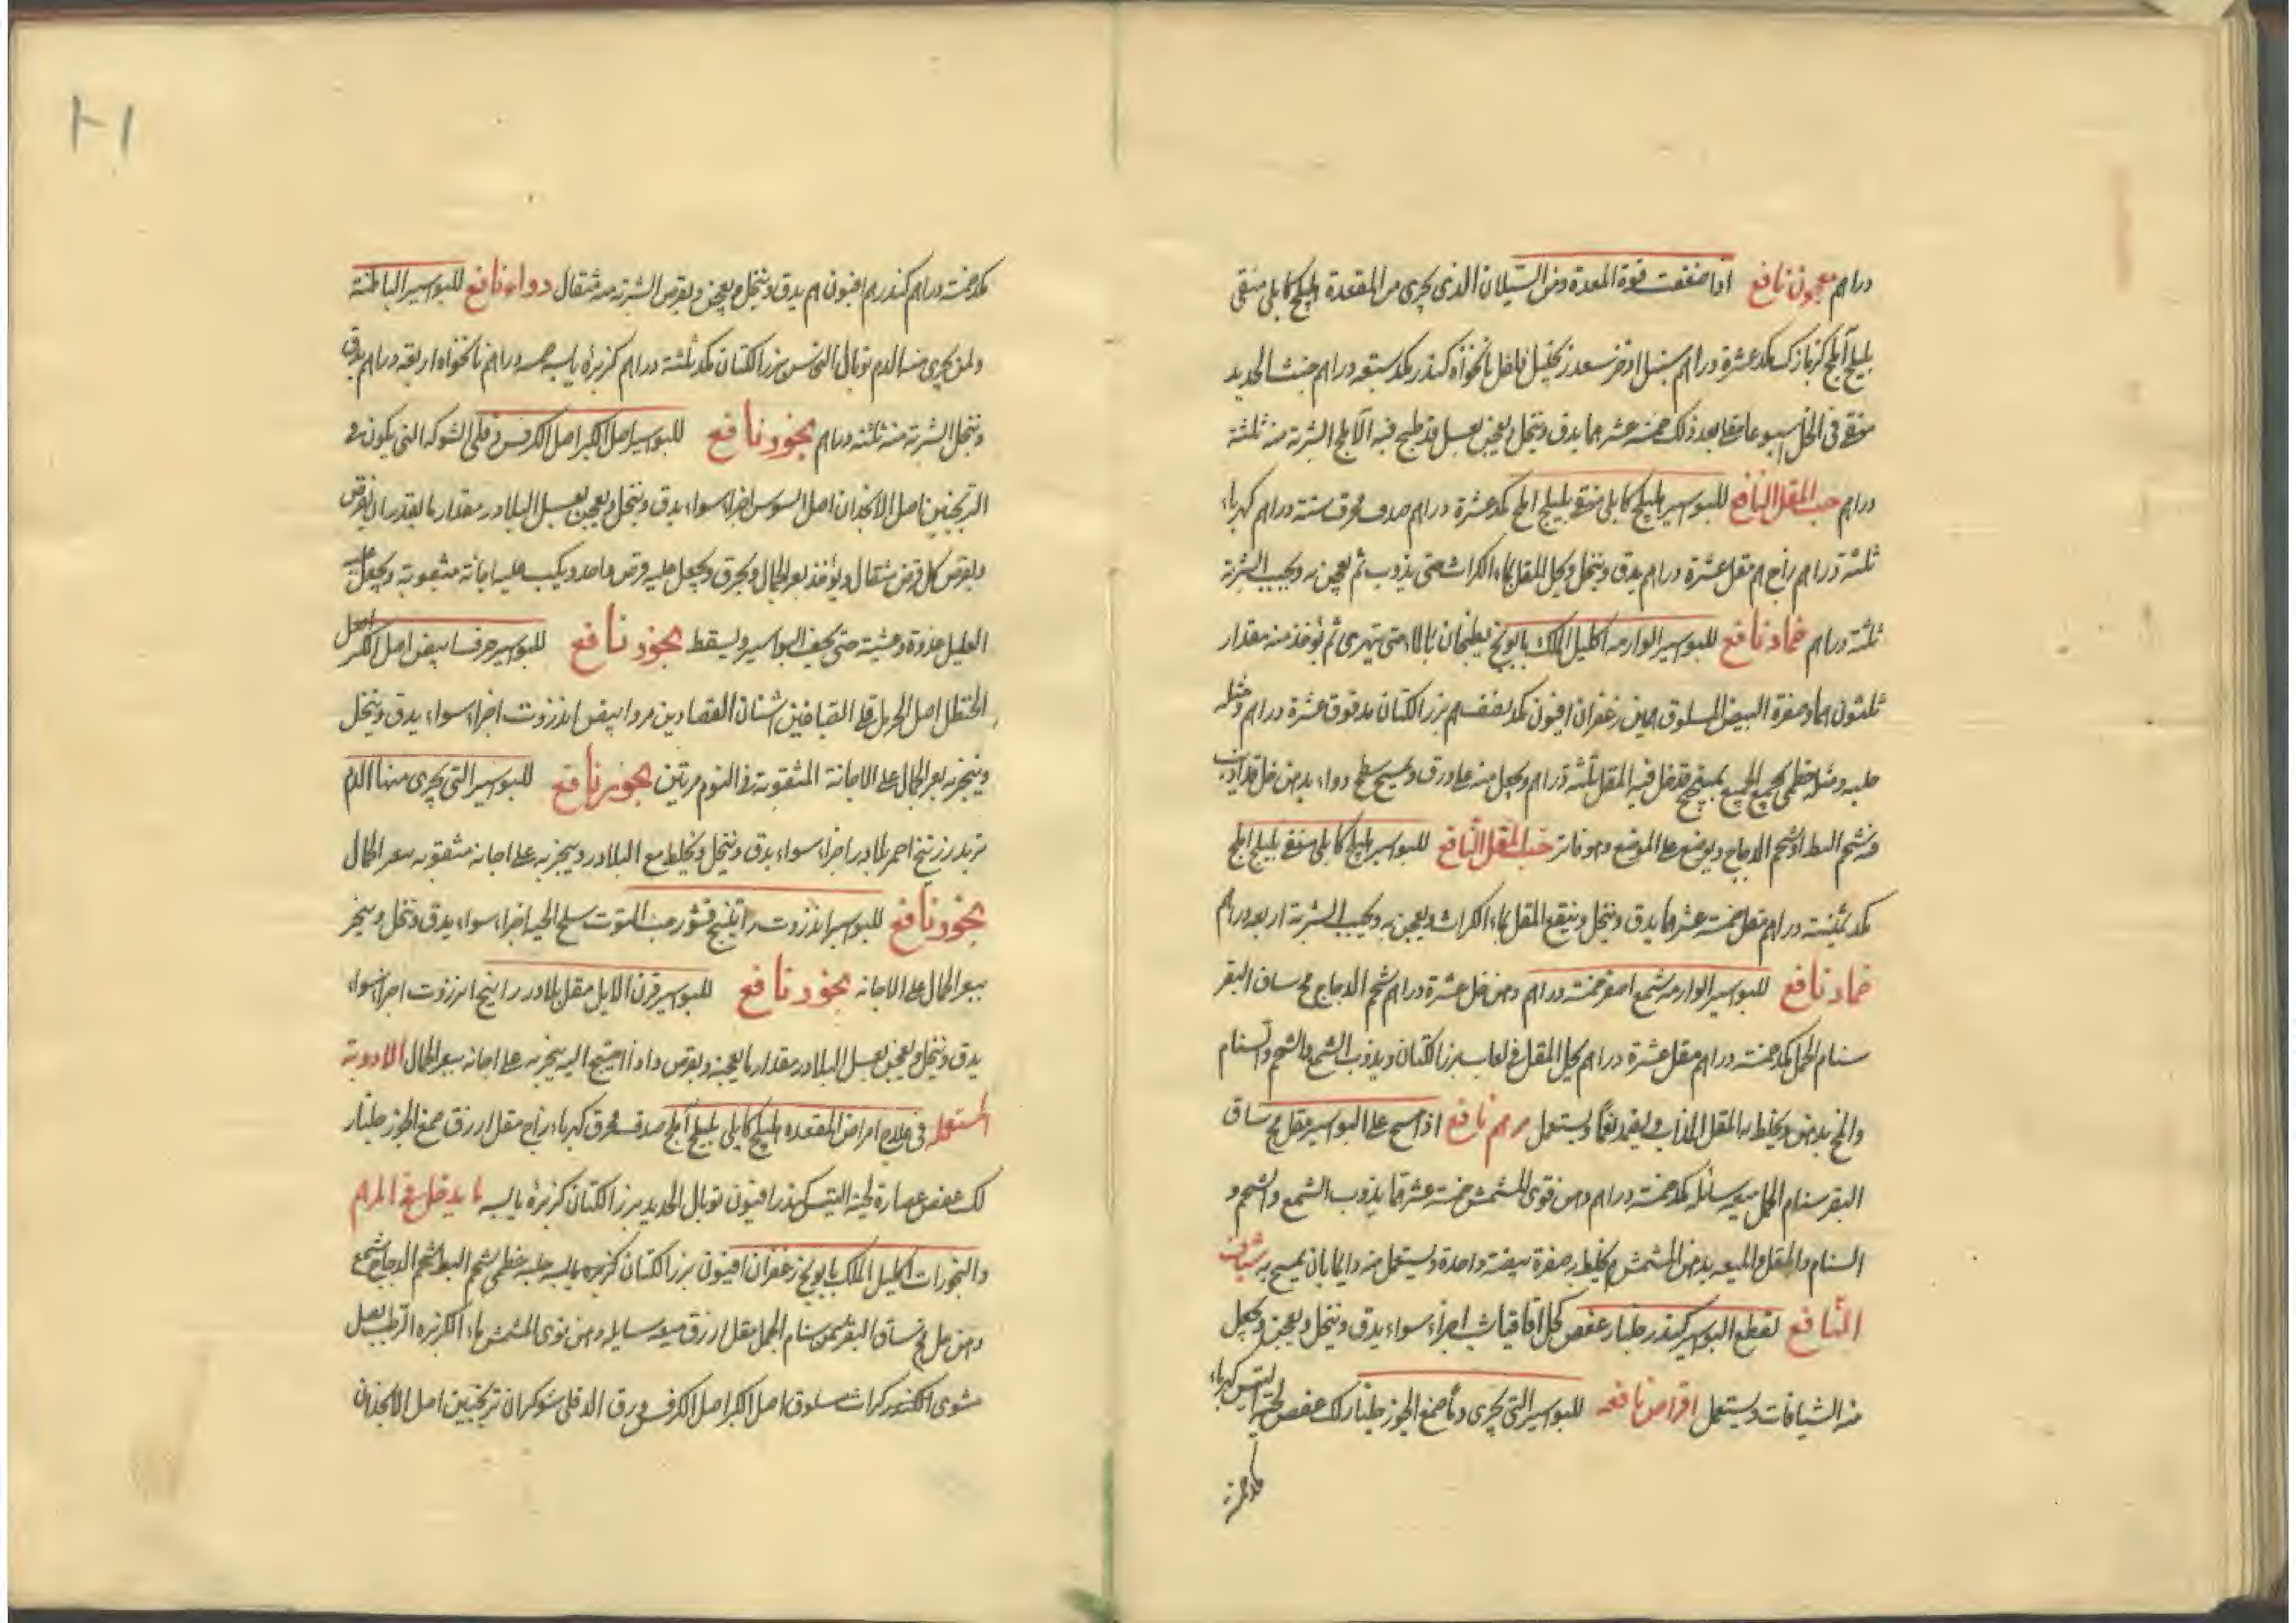 دراهم معجون نافع اذا ضعفت قوة المعدة ومن السيلان الذى يجرى من المقعدة اهليلج كابلى منقى
بليلج آملج كزمازك مكد عشرة دراهم سنبل اذخر سعد زنجبيل فلفل نانخواه كندر مكد سبعة دراهم خبث الحديد
منقع فى الخل اسبوعا بعد ذلك خمسة عشر درهما يدق وينخل ويعجن بعسل قد طبخ فيه الآملج الشربة منه ثلثة
دراهم حب المقل النافع للبواسير اهليلج كابلى منقى بليلج املج مكد عشرة دراهم صدف محرق ستة دراهم كهرباء
ثلثة دراهم زاج مقل عشرة دراهم يدق وينخل ويحل المقل بماء الكراث حتى يذوب ثم يعجن به ويحبب الشربة
ثلثة دراهم ضماد نافع للبواسير الوارمة اكليل الملك بابونج يطبخان بالماء حتى يتهرى ثم يؤخذ منه مقدار
ثلثون درهما وصفرة البيض المسلوق زعفران افيون مكد نصف درهم بزر الكتان مدقوق عشرة دراهم ومثله
حلبه ومثله خطمى يجمع الجميع قد حل فيه المقل ثلثة دراهم ويجعل منه على ورق ويمسح سطح دواء بدهن خل قد اذيب
فيه شحم البط او شحم الدجاج ويوضع على الموضع وهو فاتر حب المقل النافع للبواسير اهليلج كابلى منقى بليلج املج
مكد ثمنية دراهم مقل خمسة عشر درهما يدق وينخل وينقع المقل بماء الكراث ويعجن به ويحبب الشربة اربعة دراهم
ضماد نافع للبواسير الوارمه شمع اصفر خمسة دراهم دهن خل عشرة دراهم شحم الدجاج مخ ساق البقر
سنام الجمل مكد خمسة دراهم مقل عشرة دراهم يحل المقل فى لعاب بزر الكتان ويذوب الشمع والشحم والسنام
والمخ بدهن ويخلط به المقل المذاب ويستعمل مرهم نافع اذا مسح على البواسير مقل مخ ساق
البقر سنام الجمل ميعه سائله مكد خمسة دراهم دهن نوى المشمش خمسة عشر درهما يذوب الشمع والشحم و
السنام والمقل والميعه بدهن المشمش ويخلط به صفرة بيضة واحدة ويستعمل منه دايما بان يمسح به شياف
النافع لقطع البواسير كندر جلنار عفص كحل اقاقيا شب اجزاء سواء يدق وينخل ويعجن ويجعل
منه الشيافات ويستعمل اقراص نافعه للبواسير التى يجرى دمها صمغ الجوز جلنار لك عفص لحية التيس كهرباء
مكد خمسة
مكد خمسة دراهم كندر درهم افيون درهم يدق وينخل ويعجن ويقرص الشربة منه مثقال دواء نافع للبواسير الباطنة
ولمن يجرى منه الدم توبال النحاس بزر الكتان مكد ثلثة دراهم كزبرة يابسه خمسة دراهم نانخواه اربعة دراهم يدق
وينخل الشربة منه ثلثة دراهم بخور نافع للبواسير اصل الكبر اصل الكرفس دفلى الشوكه التى يكون فى
الترنجبين اصل الانجدان اصل السوس اجزاء سواء يدق وينخل ويعجن بعسل البلادر مقدار ما يقدر ان يقرص
ويقرص كل قرص مثقال ويؤخذ بعر الجمال ويحرق ويجعل عليه قرص واحد ويكب عليه اجانة مثقوبة ويجعل عليه
العليل غدوة وعشية حتى يجف البواسير ويسقط بخور نافع للبواسير حرف ابيض اصل الكبر اصل
الحنظل اصل الحرمل قلى الصباغين اشنان القصارين مر وابيض انزروت اجزاء سواء يدق وينخل
ويبخر به بعر الجمال على الاجانة المثقوبة فى اليوم مرتين بخور نافع للبواسير التى يجرى منها الدم
تربد زرنيخ احمر بلادر اجزاء سواء يدق وينخل ويخلط مع البلادر ويبخر به على اجانه مثقوبه ببعر الجمال
بخور نافع للبواسير انزروت راتينج قشور حب التوت سلخ الحيه اجزاء سواء يدق وينخل ويبخر
ببعر الجمال على الاجانه بخور نافع للبواسير قرن الايل مقل بلادر راتينج انزروت اجزاء سواء
يدق وينخل ويعجن بعسل البلادر مقدار ما يعجنه ويقرص واذا احتيج اليه يبخر به على اجانه ببعر الجمال الادوية
المستعمله فى علاج امراض المقعده اهليلج كابلى بليلج املج صدف محرق كهرباء زاج مقل ازرق صمغ الجوز جلنار
لك عفص عصارة لحية التيس كندر افيون توبال الحديد بزر الكتان كزبرة يابسه ما يدخل فى المراهم
والبخورات اكليل الملك بابونج زعفران افيون بزر الكتان كزبره يابسه حلبه خطمى شحم البط شحم الدجاج شمع
دهن خل مخ ساق البقر سمن سنام الجمل مقل ازرق ميعه سايله دهن نوى المشمش ماء الكزبره الرطب بصل
مشوى كندر كراث مسلوق اصل الكبر اصل الكرفس ورق الدفلى شوكران ترنجبين اصل الانجدان